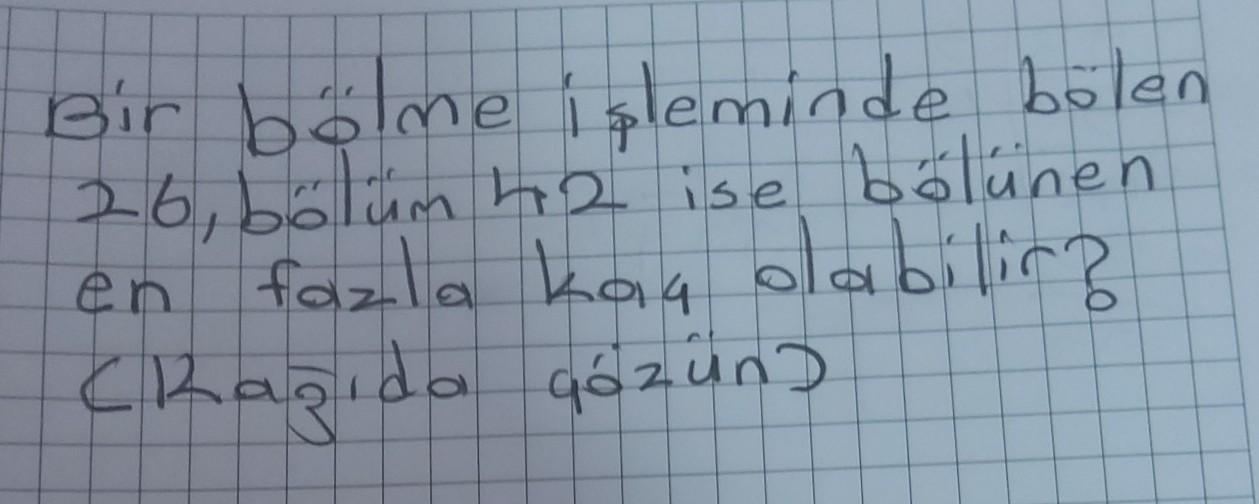 Bir bölme işleminde bölen
26, bölüm 42 ise bölünen
en fazla kaç olabilir?
(Kağıda çözün)